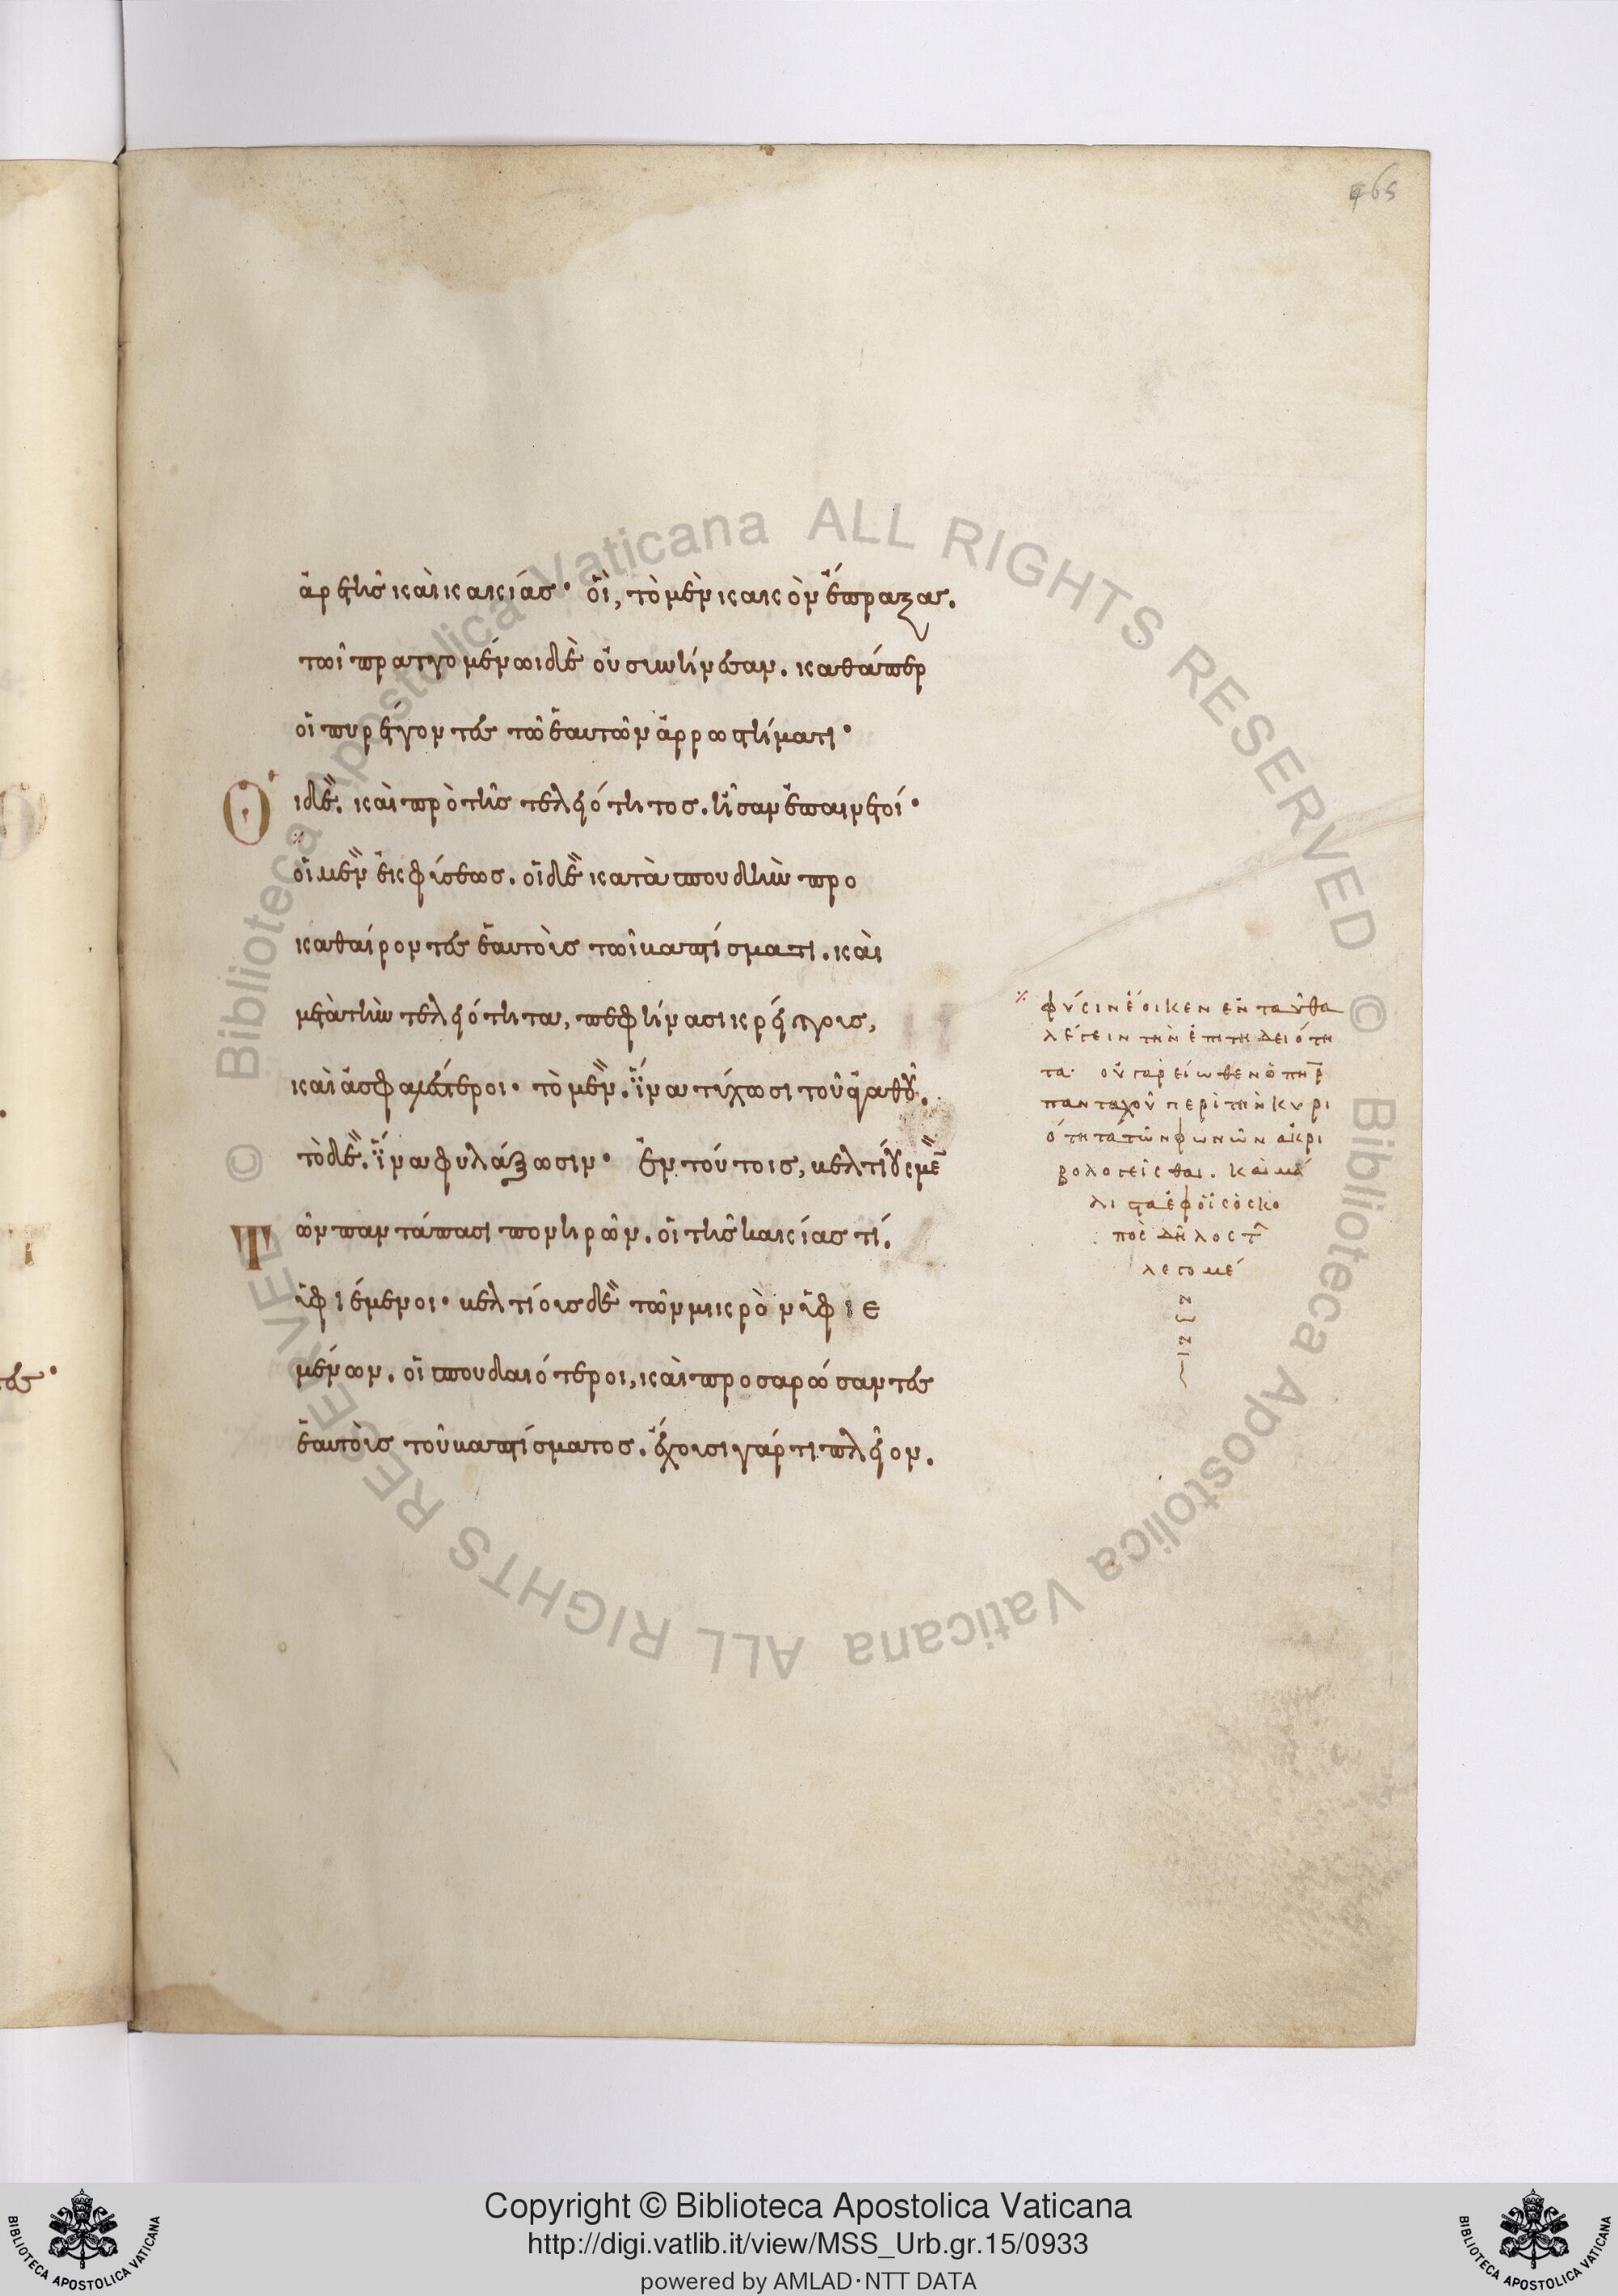 465
ἀρετῆς καὶ κακίας· οἳ, τὸ μὲν κακὸν ἔπραξαν.
τῶι πραττομένωι δὲ οὐ συνήνεσαν. καθάπερ
οἱ πυρέττοντες τῶ ἑαυτῶν ἀρρωστήματι·
Οἱ δὲ. καὶ πρὸ τῆς τελειότητος. ἦσαν ἐπαινετοί·
οἱ μὲν ἐκ φύσεως. οἱ δὲ κατὰ σπουδὴν προ
καθαίροντες ἑαυτοὺς τῶι βαπτίσματι. καὶ
μετὰ τὴν τελειότητα, πεφήνασι κρείττους,
καὶ ἀσφαλέστεροι· τὸ μὲν. ἵνα τύχωσι τοῦ ἀγαθοῦ.
τὸ δὲ. ἵνα φυλάξωσιν· ἐν τούτοις, βελτίους μὲ̅
Τῶν παντάπασι πονηρῶν. οἱ τῆς κακίας τί.
ὑφιέμενοι· βελτίους δὲ τῶν μικρὸν ὑφιε
μένων. οἱ σπουδαιότεροι, καὶ προσαρόσαντες
ἑαυτοὺς τοῦ βαπτίσματος. ἔχουσι γάρ τι πλεῖον.
φύσιν ἔοικεν ἐνταῦθα
λέγειν τὴν ἐπιτηδειότη
τα· οὐ γὰρ εἴωθεν ὁ πη̅ρ
πανταχοῦ περὶ τὴν κυρι
ότητα τῶν φωνῶν ἀκρι
βολογεῖσθαι. καὶ μά
λιστα ἐφ οἷς ὁ σκο
πὸς δῆλος τ̑
λεγομέ
ν
ω
ν
Copyright © Biblioteca Apostolica Vaticana
http://digi.vatlib.it/view/MSS_Urb.gr.15/0933
powered by AMLAD·NTT DATA
BIBLIOTECA APOSTOLICA VATICANA
BIBLIOTECA APOSTOLICA VATICANA
© Biblioteca Apostolica Vaticana ALL RIGHTS RESERVED
© Biblioteca Apostolica Vaticana ALL RIGHTS RESERVED